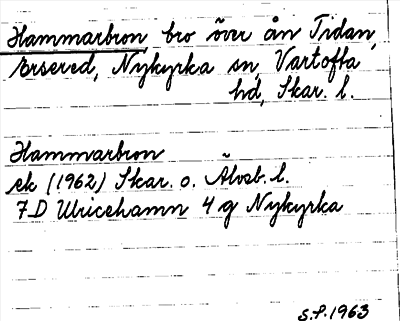 Hammarbron bro över ån Tidan,
Örsered, Nykyrka sn, Vartofta
hd, Skar. l.
Hammarbron
ek (1962) Skar. o. Älvsb. l.
7 D Ulricehamn 4 g Nykyrka
S.P. 1963